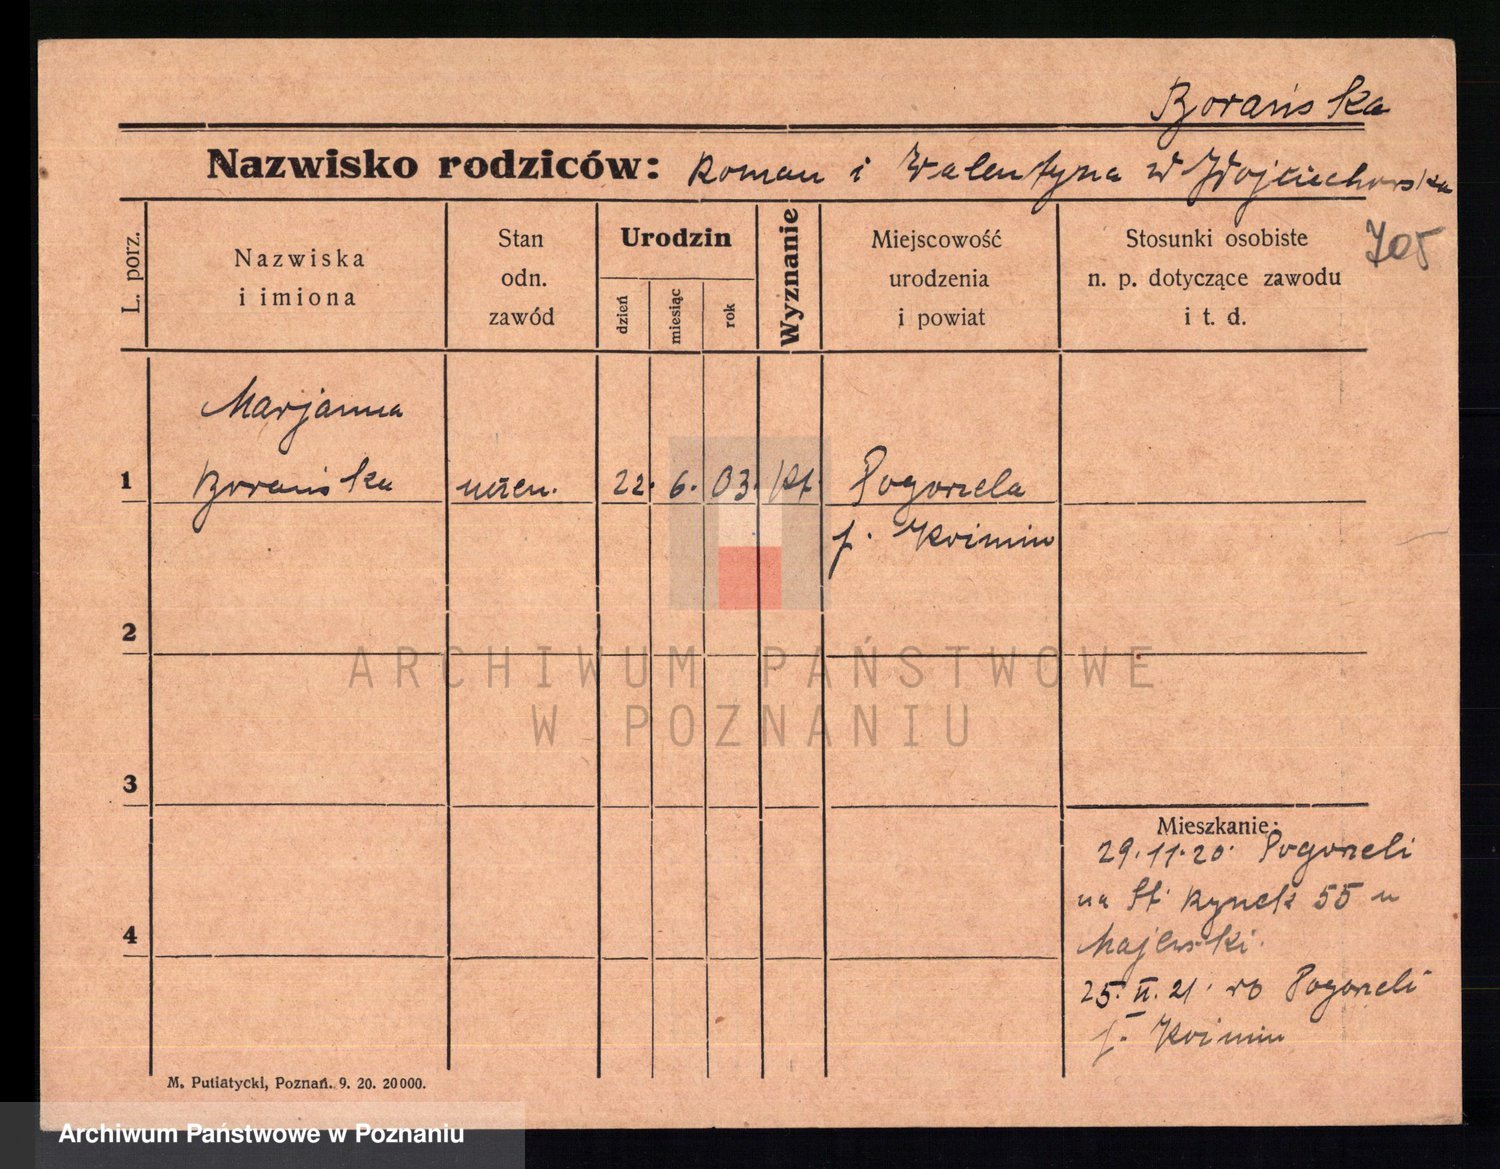 Borańska
Nazwisko rodziców: Roman i Walentyna d Wojciechowska
705
L. porz.
Nazwiska
i imiona
Stan
odn.
zawód
Urodzin
dzień
miesiąc
rok
Wyznanie
Miejscowość
urodzenia
i powiat
Stosunki osobiste
n. p. dotyczące zawodu
i t. d.
Marjanna
1 Borańska uczen. 22. 6. 03. kt. Pogorzela
p. Koźmin
2
3
4
Mieszkanie:
29.11.20. Pogorzeli
na St. Rynek 55 u
Majewski.
25. II. 21. do Pogorzeli
p. Koźmin
M. Putiatycki, Poznań. 9. 20. 20000.
ARCHIWUM PAŃSTWOWE
W POZNANIU
Archiwum Państwowe w Poznaniu